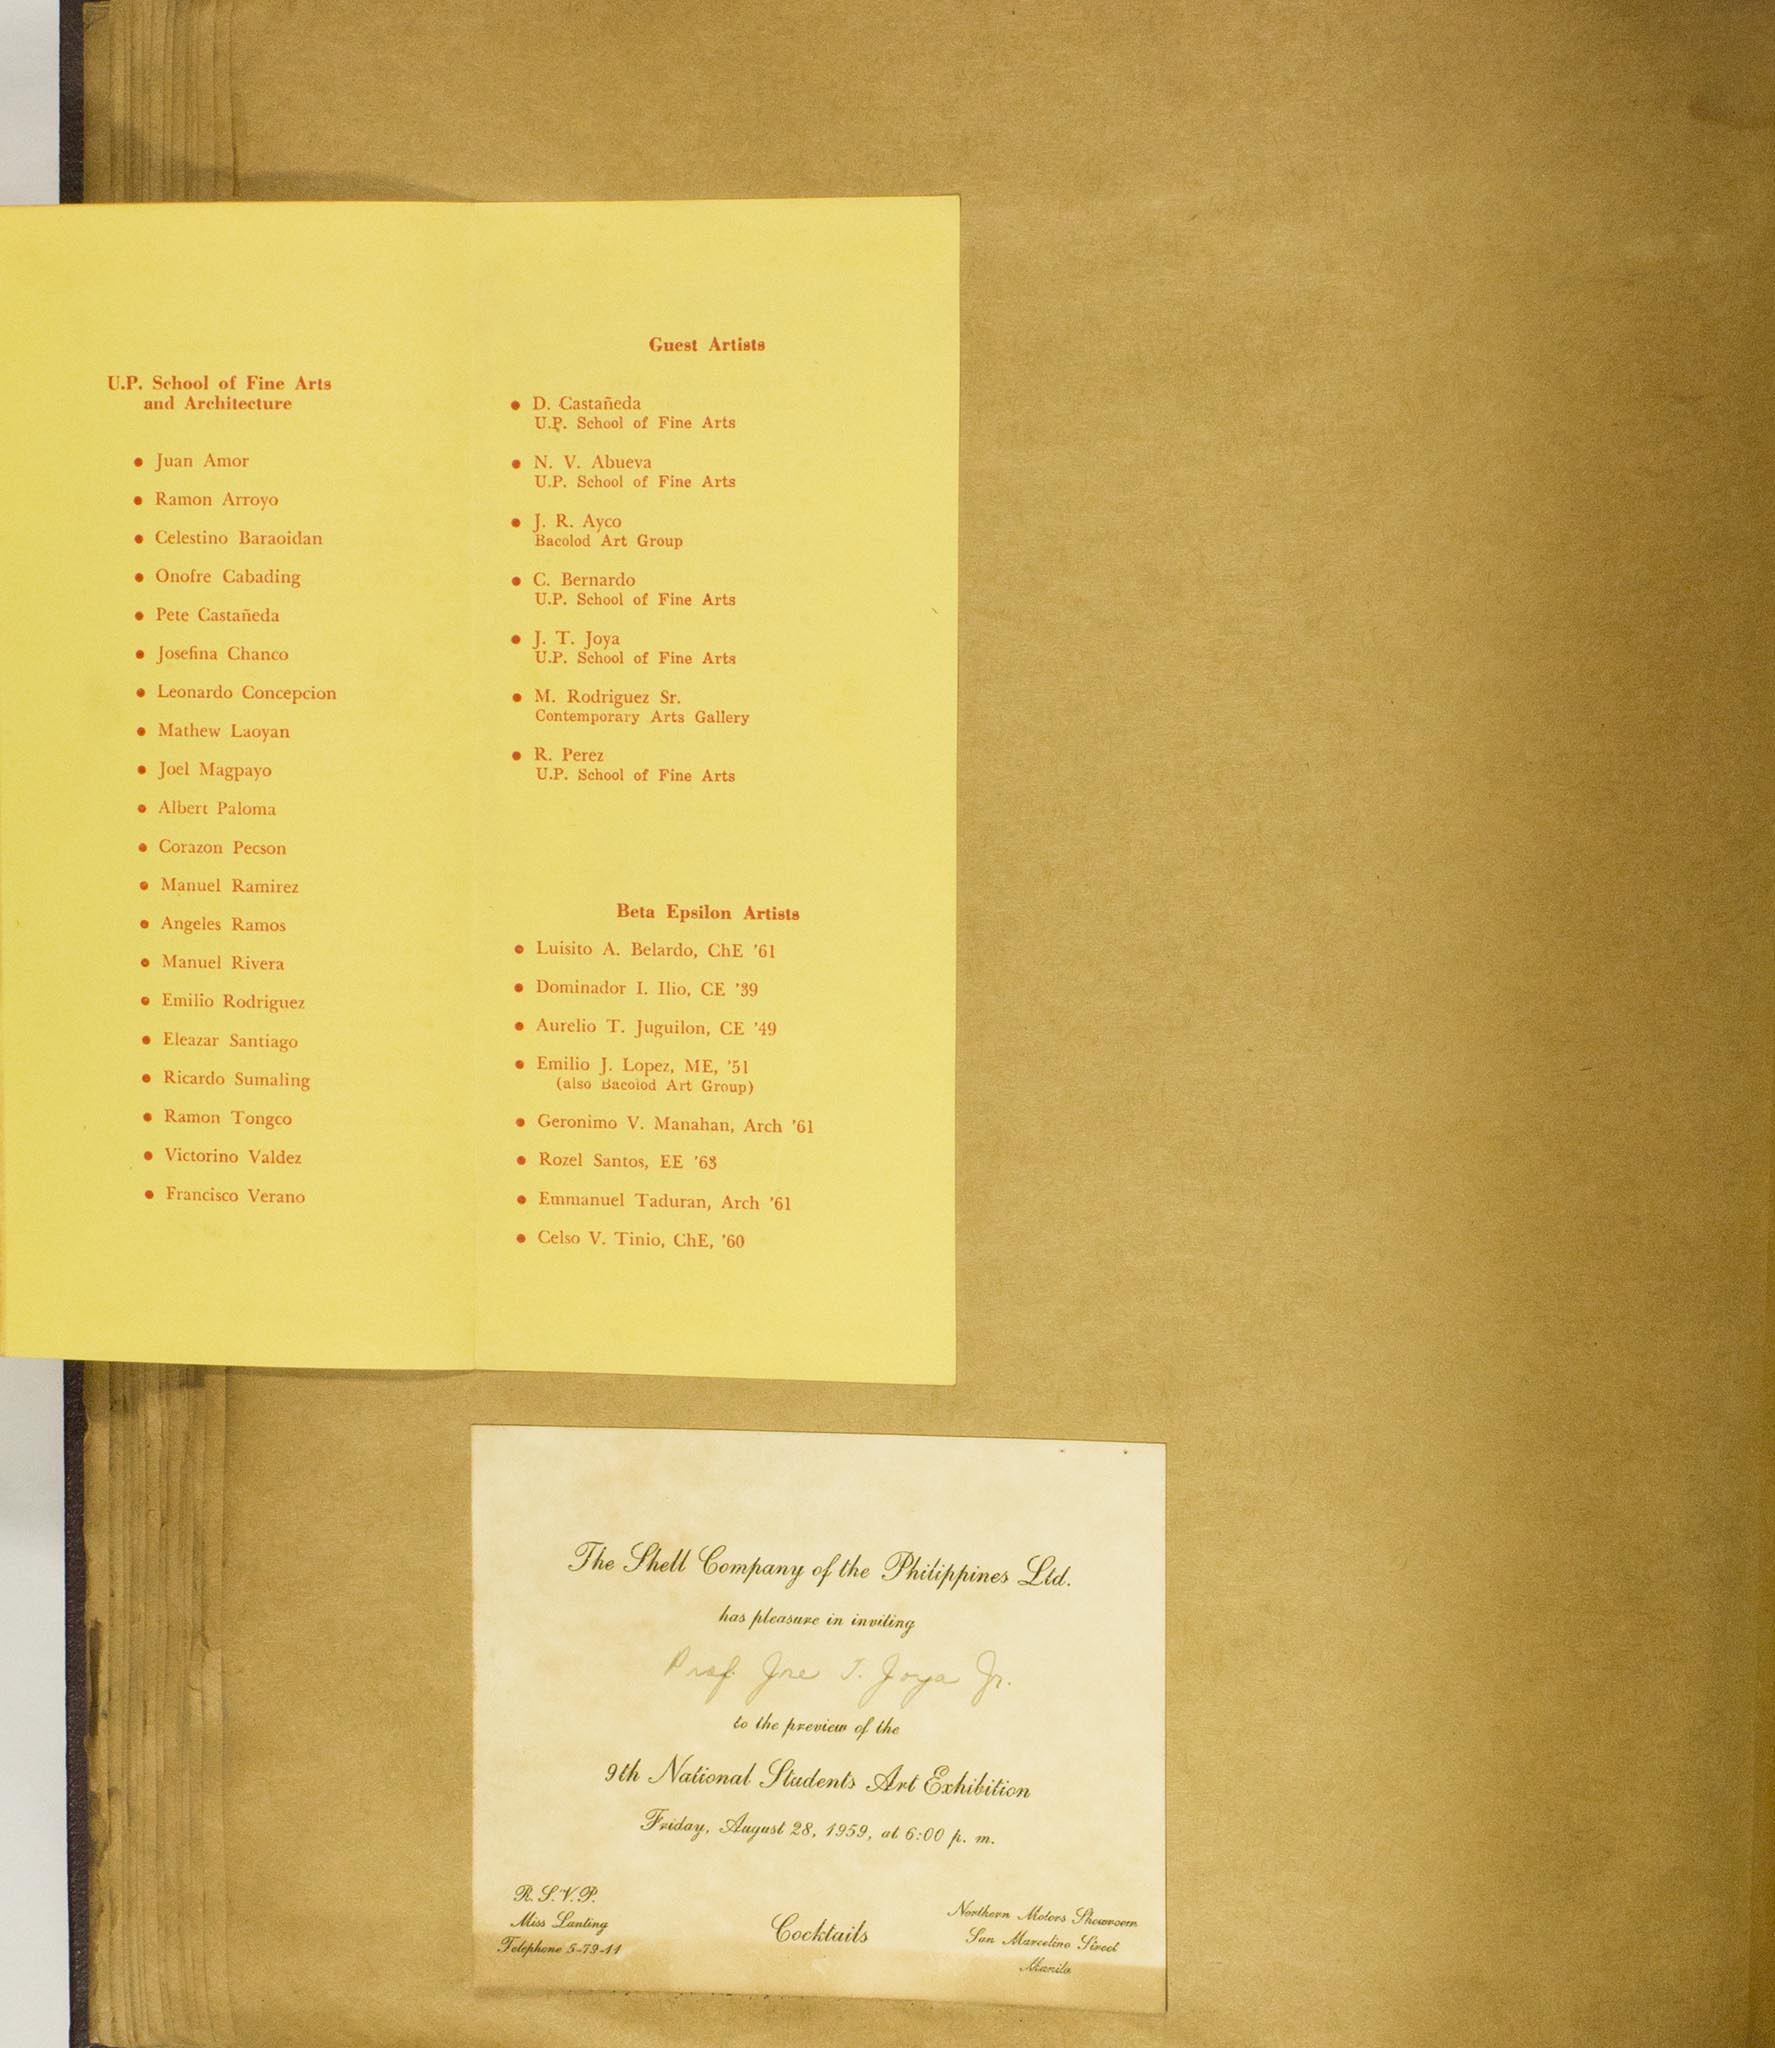 U.P. School of Fine Arts
and Architecture
• Juan Amor
• Ramon Arroyo
• Celestino Baraoidan
• Onofre Cabading
• Pete Castañeda
• Josefina Chanco
• Leonardo Concepcion
• Mathew Laoyan
• Joel Magpayo
• Albert Paloma
• Corazon Pecson
• Manuel Ramirez
• Angeles Ramos
• Manuel Rivera
• Emilio Rodriguez
• Eleazar Santiago
• Ricardo Sumaling
• Ramon Tongco
• Victorino Valdez
• Francisco Verano
Guest Artists
• D. Castañeda
U.P. School of Fine Arts
• N. V. Abueva
U.P. School of Fine Arts
• J. R. Ayco
Bacolod Art Group
• C. Bernardo
U.P. School of Fine Arts
• J. T. Joya
U.P. School of Fine Arts
• M. Rodriguez Sr.
Contemporary Arts Gallery
• R. Perez
U.P. School of Fine Arts
Beta Epsilon Artists
• Luisito A. Belardo, ChE '61
• Dominador I. Ilio, CE '39
• Aurelio T. Juguilon, CE '49
• Emilio J. Lopez, ME, '51
(also Bacolod Art Group)
• Geronimo V. Manahan, Arch '61
• Rozel Santos, EE '63
• Emmanuel Taduran, Arch '61
• Celso V. Tinio, ChE, '60
The Shell Company of the Philippines Ltd.
has pleasure in inviting
Prof. Jose T. Joya Jr.
to the preview of the
9th National Students Art Exhibition
Friday, August 28, 1959, at 6:00 p. m.
R. S. V. P.
Miss Lanting
Telephone 5-79-11
Cocktails
Northern Motors Showroom
San Marcelino Street
Manila